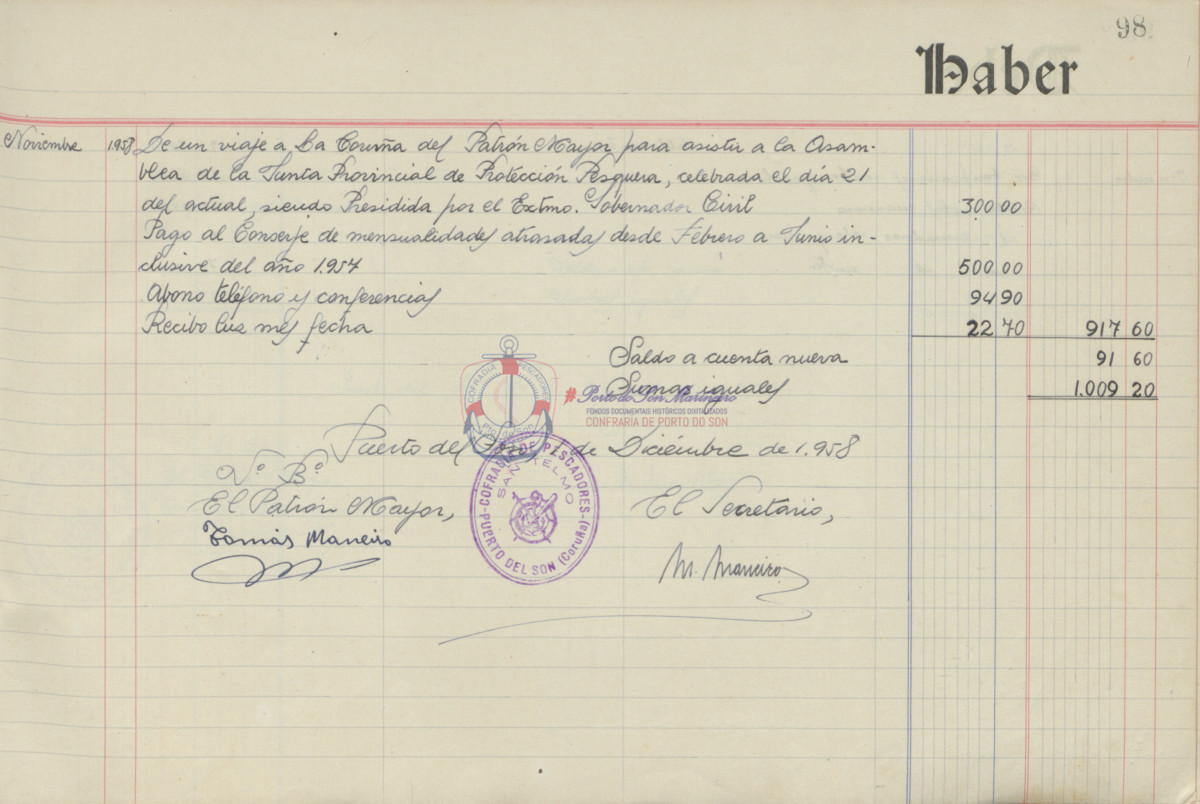 98
Haber
Noviembre 1.958 De un viaje a La Coruña del Patrón Mayor para asistir a la Asam-
blea de la Junta Provincial de Protección Pesquera, celebrada el día 21
del actual, siendo Presidida por el Extmo. Gobernador Civil 300 00
Pago al Conserje de mensualidades atrasadas desde Febrero a Junio in-
clusive del año 1.957 500 00
Abono teléfono y conferencias 94 90
Recibo luz mes fecha 22 70 917 60
Saldo a cuenta nueva 91 60
Sumas iguales 1.009 20
COFRADIA PESCADORES
Pto. do Son
#Porto do Son Mariñeiro
FONDOS DOCUMENTAIS HISTÓRICOS DIXITALIZADOS
CONFRARIA DE PORTO DO SON
Puerto del Son, de Diciémbre de 1.958
Vº Bº
El Patrón Mayor,
El Secretario,
COFRADIA DE PESCADORES
SAN TELMO
PUERTO DEL SON (Coruña)
Tomás Maneiro
M. Maneiro